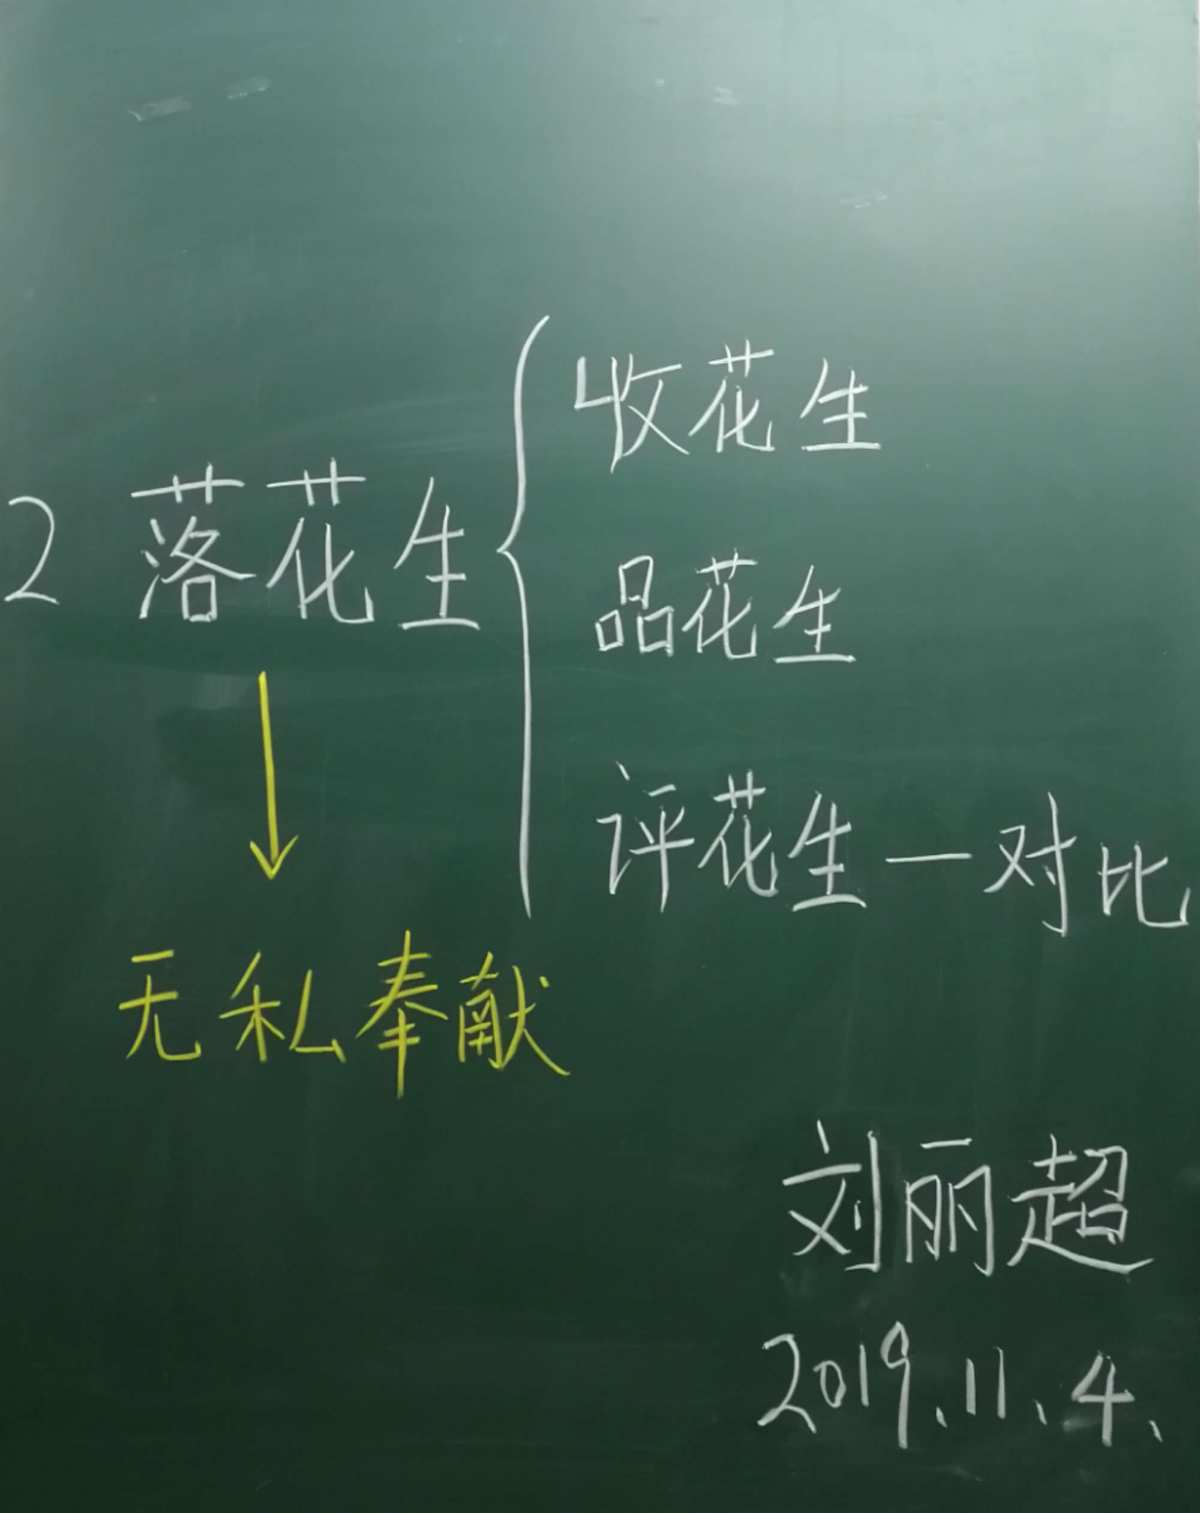 收花生
2 落花生
品花生
评花生—对比
无私奉献
刘丽超
2019.11.4.